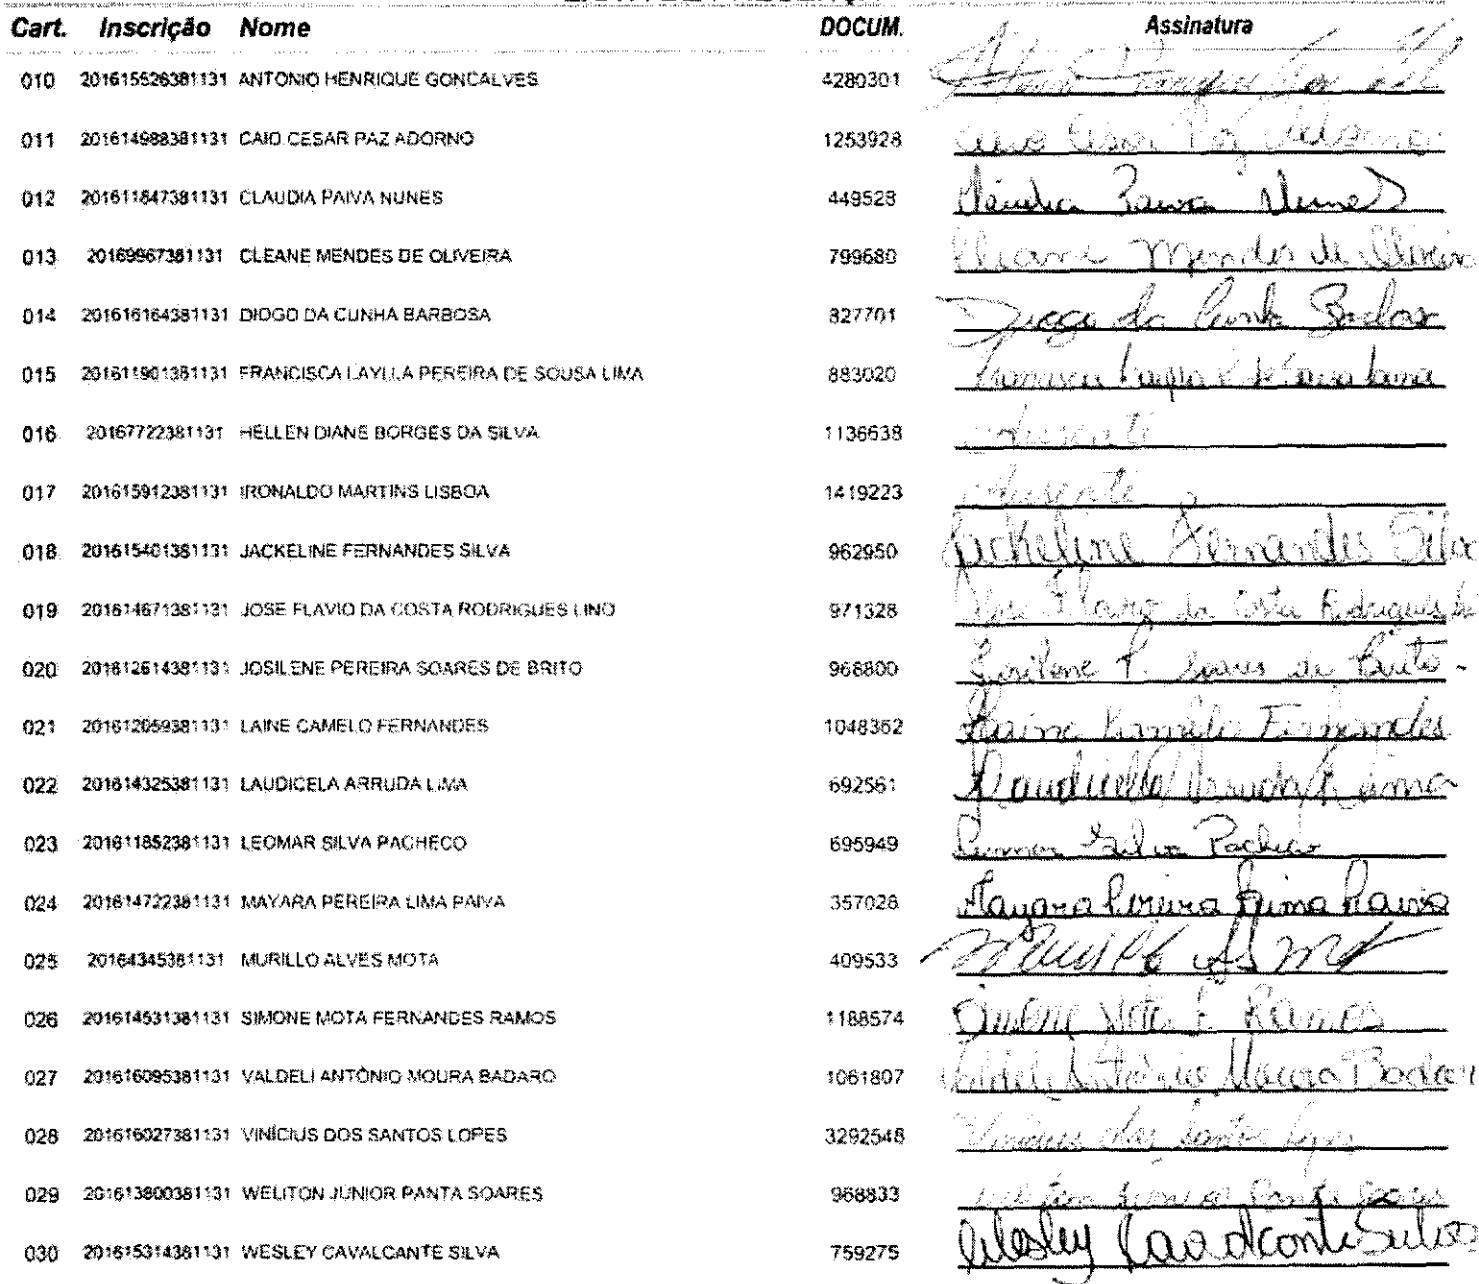 Cart. Inscrição Nome DOCUM. Assinatura
010 201615526381131 ANTONIO HENRIQUE GONCALVES 4280301
011 201614988381131 CAIO CESAR PAZ ADORNO 1253928 Caio Cesar Paz Adorno
012 201611847381131 CLAUDIA PAIVA NUNES 449528 Claudia Paiva Nunes
013 20169967381131 CLEANE MENDES DE OLIVEIRA 799680 Cleane Mendes de Oliveira
014 201616164381131 DIOGO DA CUNHA BARBOSA 827701 Diogo da Cunha
015 201611901381131 FRANCISCA LAYLLA PEREIRA DE SOUSA LIMA 883020 Francisca Laylla P. de Sousa Lima
016 20167722381131 HELLEN DIANE BORGES DA SILVA 1136638 Ausente
017 201615912381131 IRONALDO MARTINS LISBOA 1419223 Ausente
018 201615401381131 JACKELINE FERNANDES SILVA 962950 Jackeline Fernandes Silva
019 201614671381131 JOSE FLAVIO DA COSTA RODRIGUES LINO 971328 José Flavio da Costa Rodrigues
020 201612614381131 JOSILENE PEREIRA SOARES DE BRITO 968800 Josilene P. Soares de Brito -
021 201612059381131 LAINE CAMELO FERNANDES 1048362 Laine Kamelo Fernandes
022 201614325381131 LAUDICELA ARRUDA LIMA 692561 Laudicela Arruda Lima
023 201611852381131 LEOMAR SILVA PACHECO 695949 Leomar Silva Pacheco
024 201614722381131 MAYARA PEREIRA LIMA PAIVA 357028 Mayara Pereira Lima Paiva
025 20164345381131 MURILLO ALVES MOTA 409533
026 201614531381131 SIMONE MOTA FERNANDES RAMOS 1188574 Simone Mota F. Ramos
027 201616095381131 VALDELI ANTÔNIO MOURA BADARO 1061807 Valdeli Antônio Moura Badaro
028 201616027381131 VINÍCIUS DOS SANTOS LOPES 3292548 Vinícius dos Santos Lopes
029 201613800381131 WELITON JÚNIOR PANTA SOARES 968833 Weliton Júnior Panta Soares
030 201615314381131 WESLEY CAVALCANTE SILVA 759275 Wesley Cavalcante Silva